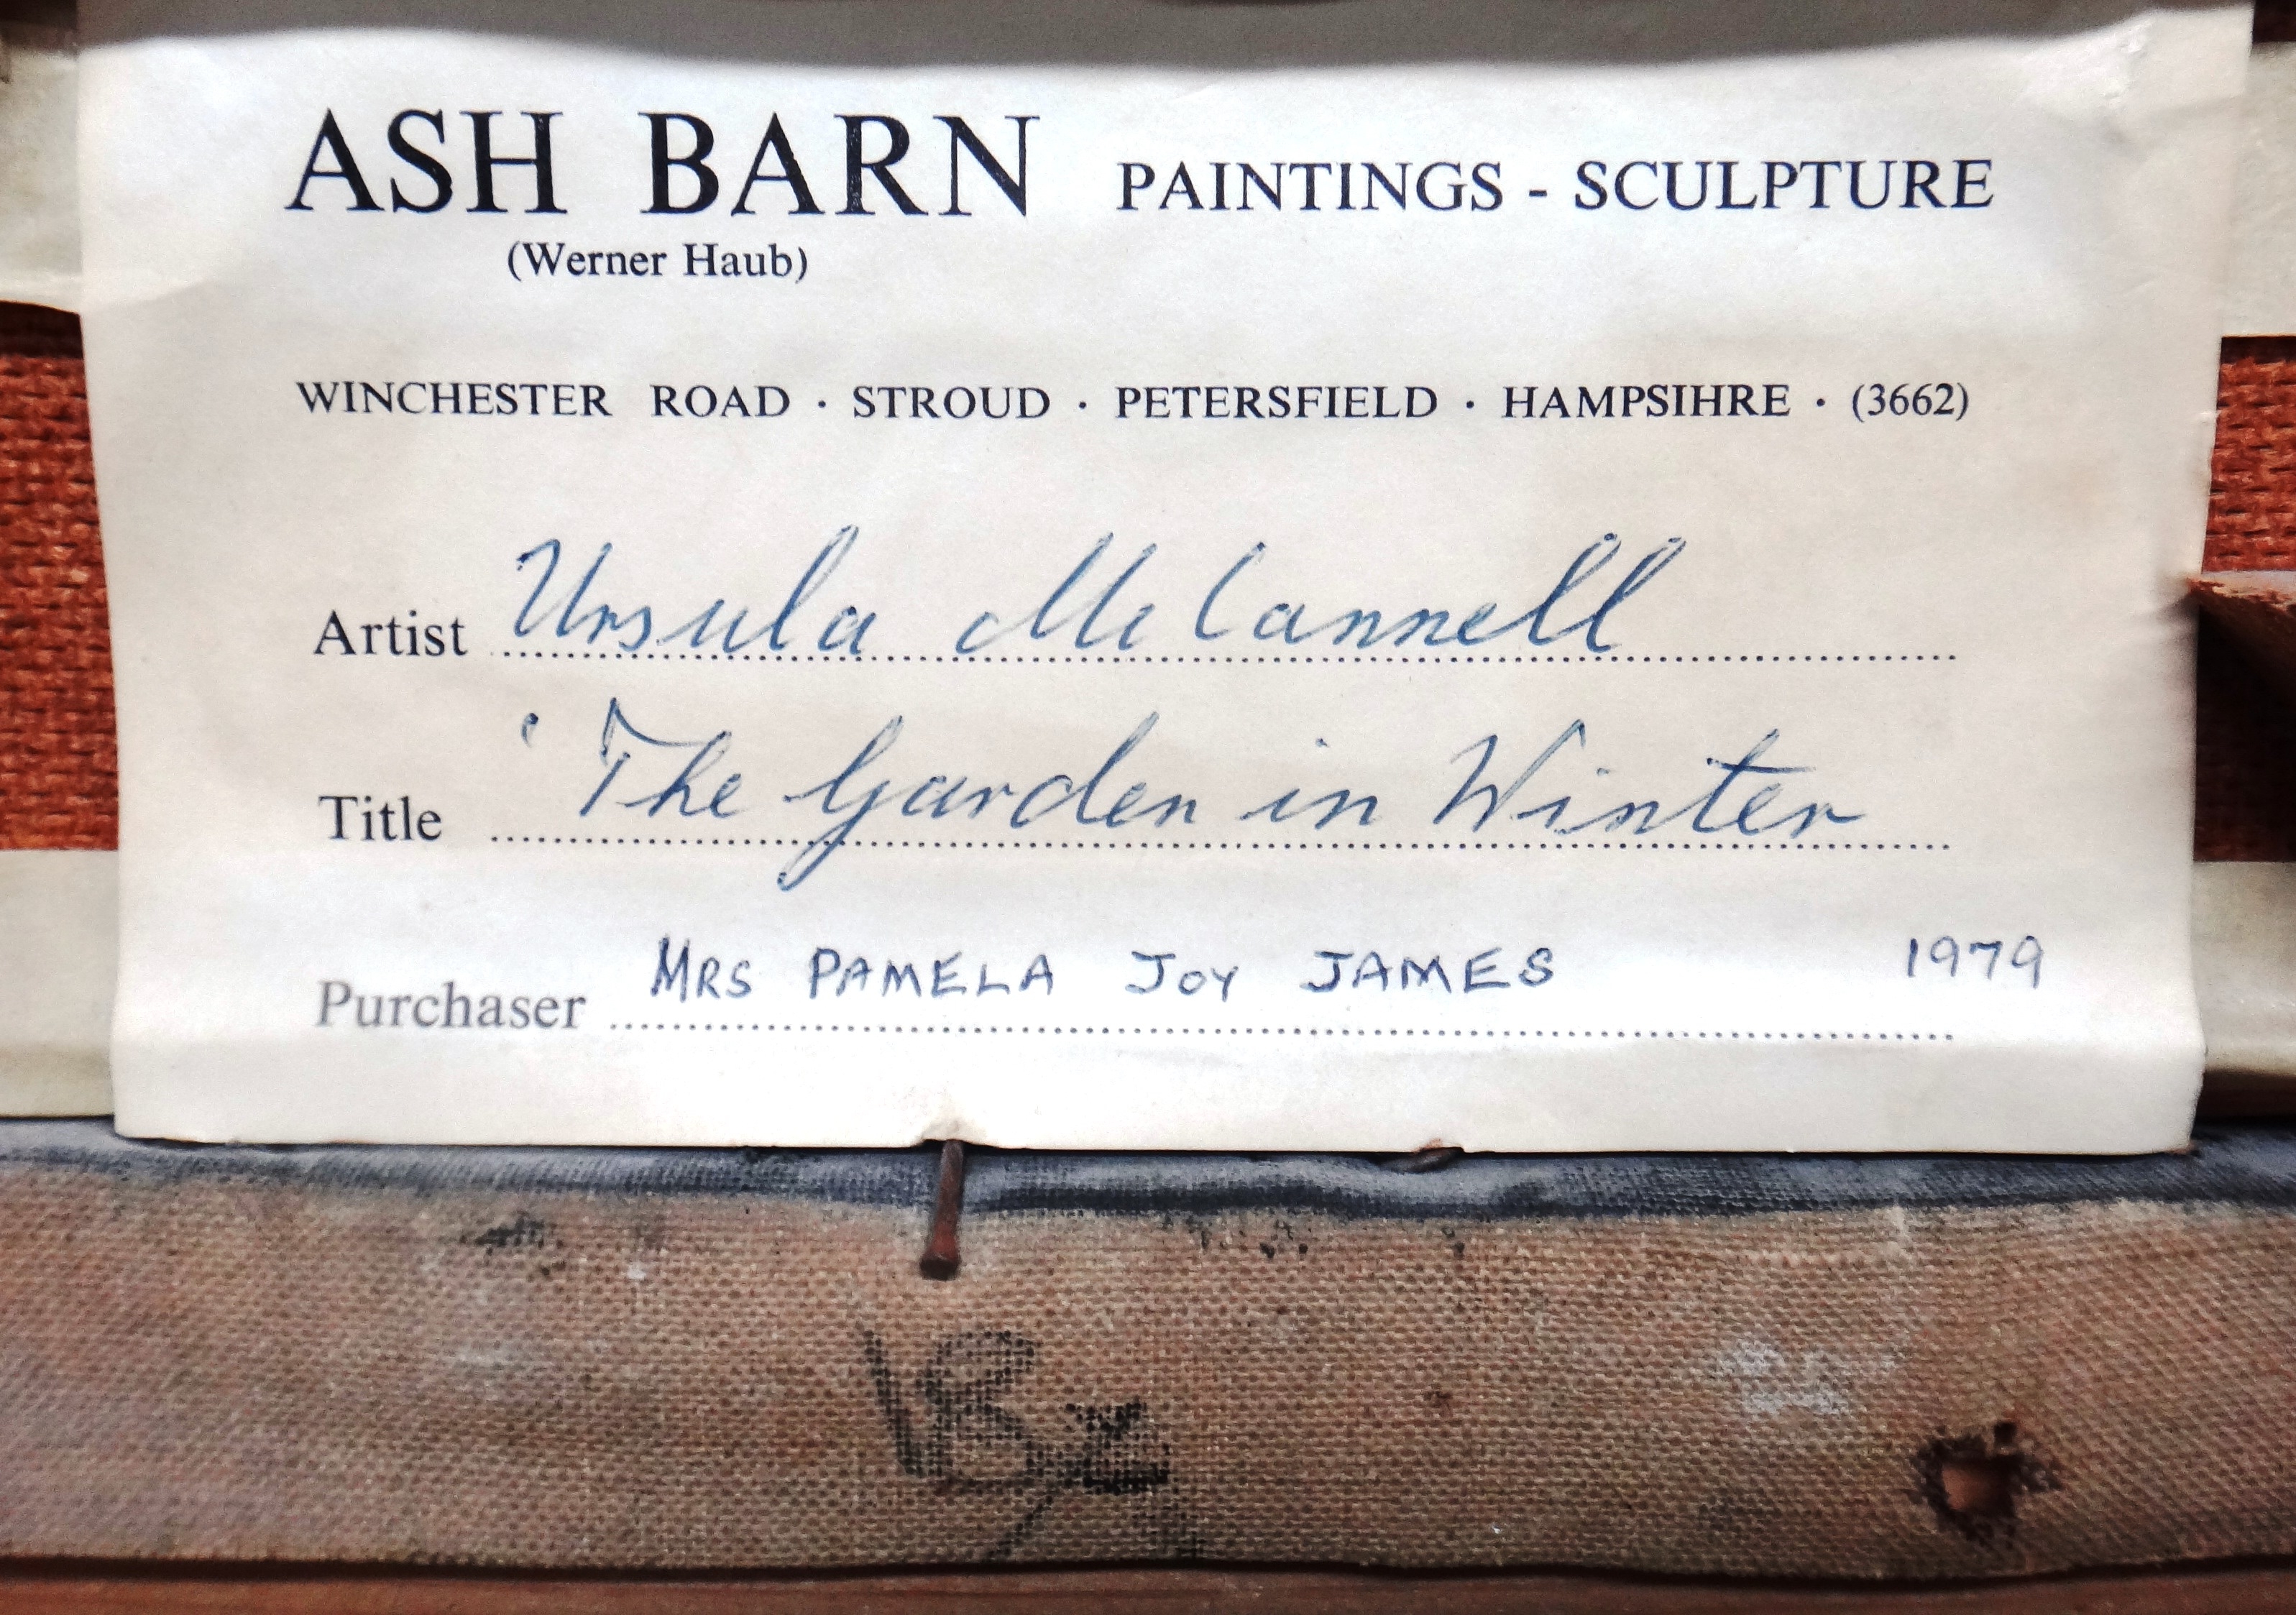 ASH BARN PAINTINGS - SCULPTURE
(Werner Haub)
WINCHESTER ROAD · STROUD · PETERSFIELD · HAMPSIHRE · (3662)
Artist Ursula McCannell
Title ' The Garden in Winter
Purchaser MRS PAMELA JOY JAMES 1979